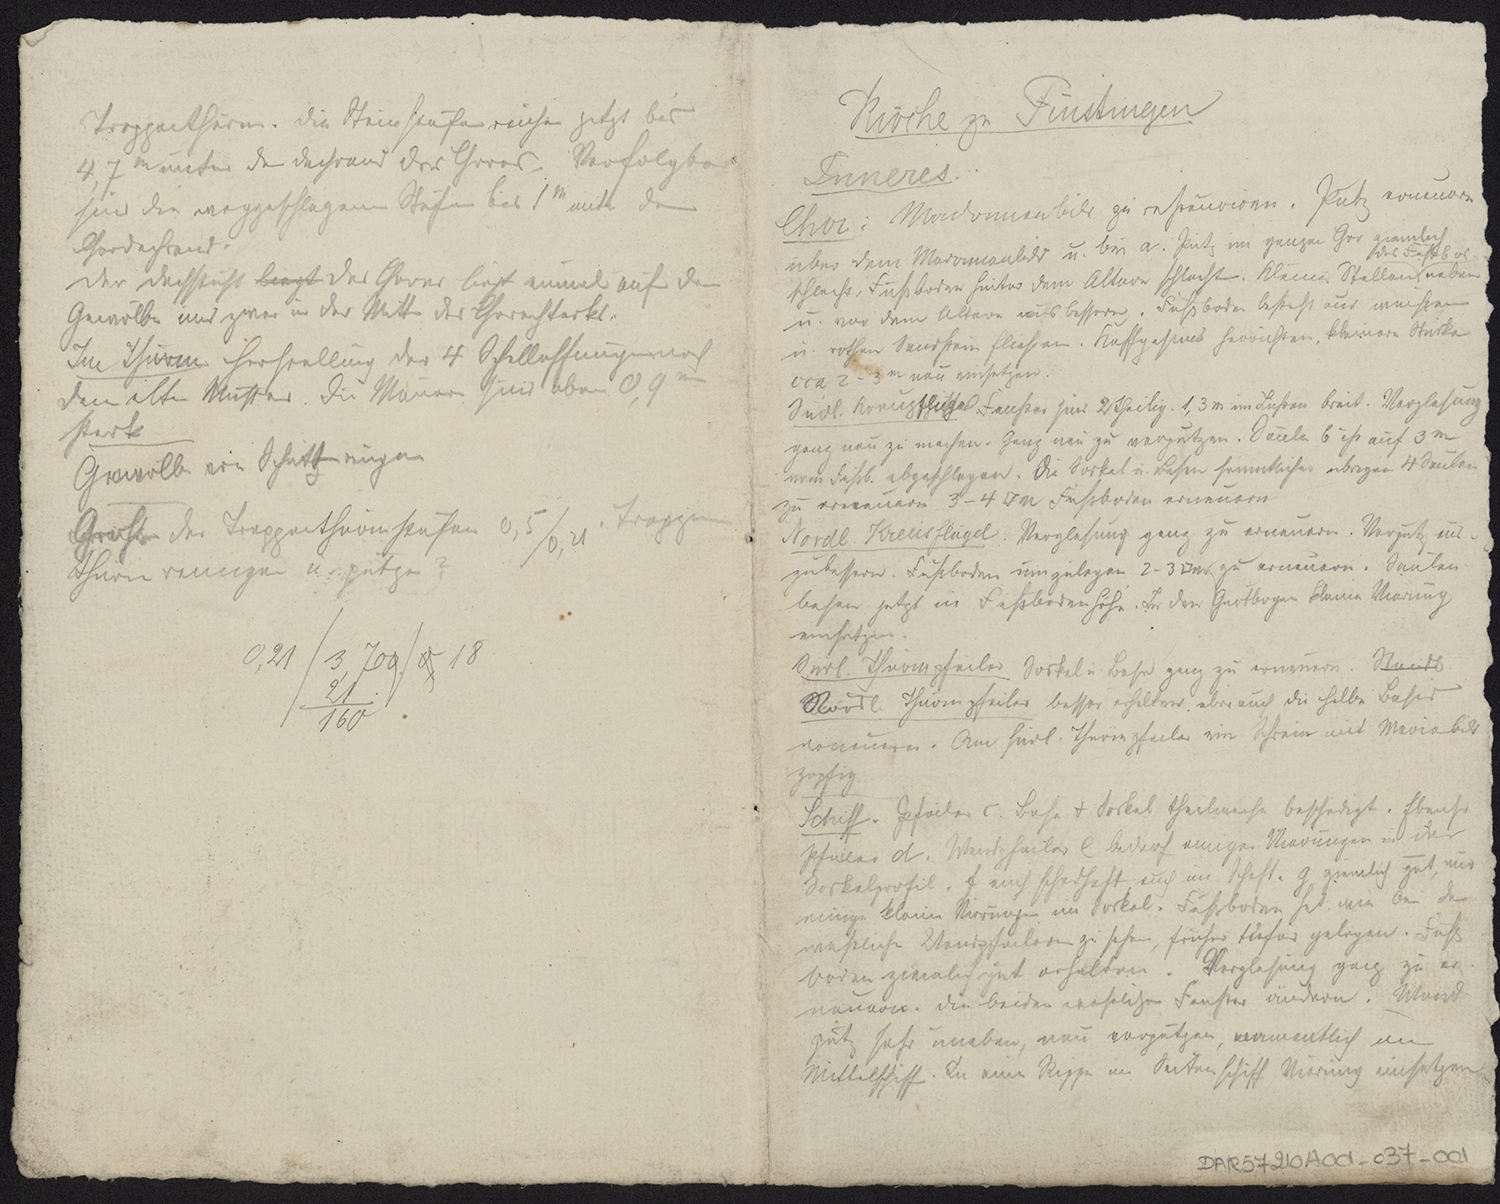 Treppenthurm. Die Steinstufen reichen jetzt bis
4,7 m unter den Dachrand des Chores. Verfolgbar
sind die weggeschlagenen Stufen bis 1 m unter dem
Chordachrand.
Der Dachstuhl liegt des Chores liegt einmal auf dem
Gewölbe und zwar in der Mitte des Chorachtecks.
Im Thurm Herstellung der 4 Schallöffnungen nach
dem alten Muster. Die Mauern sind oben 0,9 m
stark
Gewölbe von Schutt reinigen
der Treppenthurmstufen 0,5/0,21. Treppen
thurm reinigen u. putzen?
0,21 / 3,700 / 18
21
160
Kirche zu Finstingen
Inneres.
Chor: Madonnenbild zu restauriren. Putz erneuern
über dem Madonnenbild u. bei a. Putz im ganzen Chor ziemlich
schlecht. Fußboden hinter dem Altare schlecht. Kleine Stellen des Fußbod. neben
u. vor dem Altare ausbessern. Fußboden besteht aus weißen
u. rothen Sandstein fliesen. Kaffgesims herrichten, kleinere Stücke
cca 2-3 m neu einsetzen.
Südl. Kreuzflügel Fenster sind 2theilig. 1,3 m im Lichten breit. Verglasung
ganz neu zu machen. Ganz neu zu verputzen. Säule b ist auf 3 m
vom Fußb. abgeschlagen. Die Sockel u. Basen sämmtlicher übrigen 4 Säulen
zu erneuern 3-4 □m Fußboden erneuern
Nordl. Kreuzflügel. Verglasung ganz zu erneuern. Verputz aus-
zubessern. Fußboden umzulegen 2-3 □m zu erneuern. Säulen
basen jetzt in Fußbodenhöhe. In den Gurtbogen kleine Vierung
einsetzen.
Südl. Thurmpfeiler Sockel u. Base ganz zu erneuern.
Nördl. Thurmpfeiler besser erhalten aber auch die halbe Basis
erneuern. Am südl. Thurmpfeiler ein Schrein mit Marienbild
zopfig
Schiff. Pfeiler c. Base & Sockel theilweise beschädigt. Ebenso
Pfeiler d. Wandpfeiler e bedarf einiger Vierungen in der
Sockelprofil. f auch schadhaft auch im Schaft. g ziemlich gut, nur
einige kleine Vierungen im Sockel. Fußboden hat wie bei den
westlichen Wandpfeilern zu sehen, früher tiefer gelegen. Fuß
boden ziemlich gut erhalten. Verglasung ganz zu er-
neuern. Die beiden westlichen Fenster ändern. Wand
putz sehr uneben, neu verputzen, namentlich im
Mittelschiff. In eine Rippe im Seitenschiff Vierung einsetzen
DAR57210A001-037-001